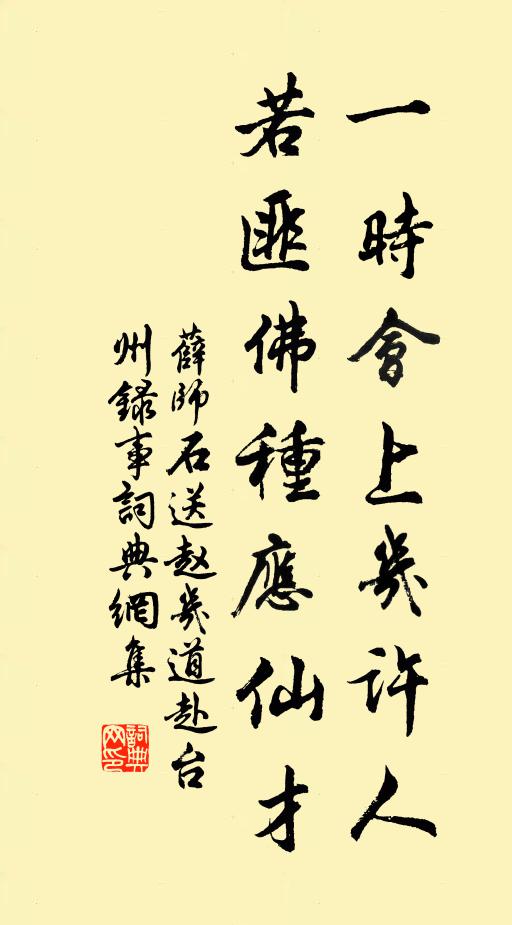 一時會上幾許人
若匪佛種應仙才
薛師石送赵幾道赴台
州録事詞典網集
詞典网印